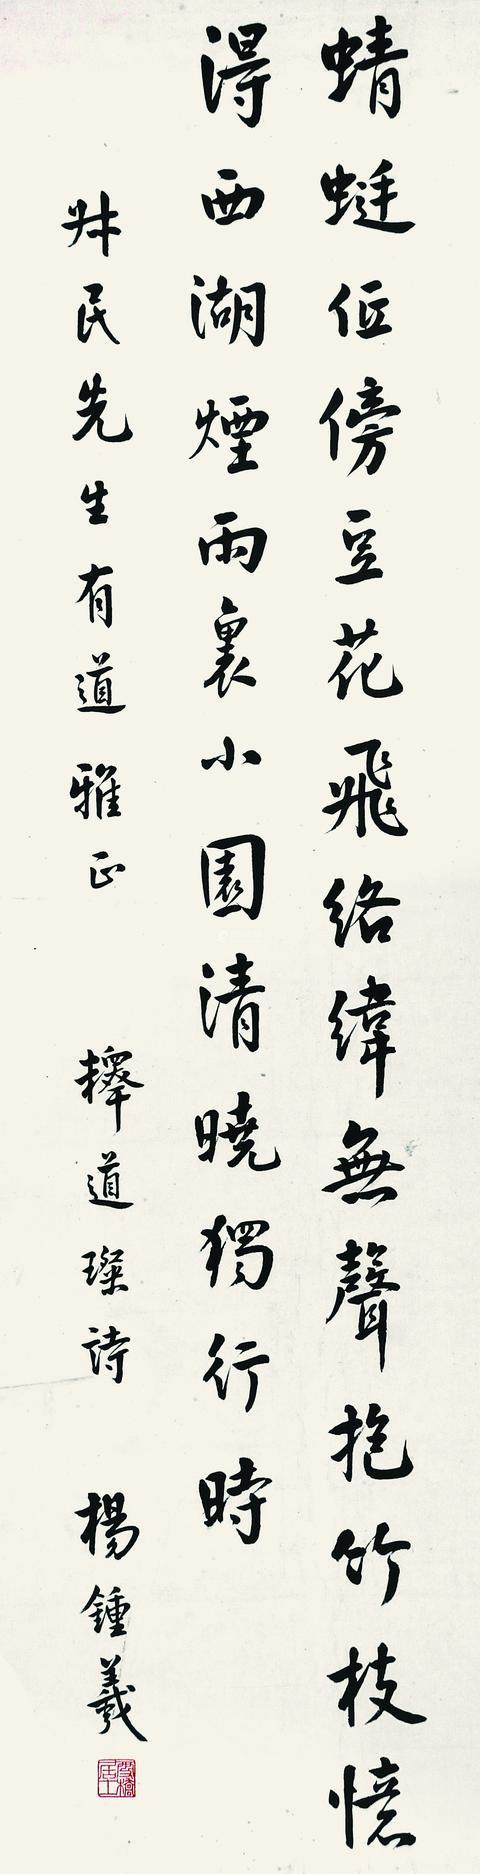 蜻蜓低傍豆花飛絡緯無聲抱竹枝憶
淂西湖煙雨裏小園清曉獨行時
叔民先生有道雅正 釋道璨詩 楊鍾羲
雪橋居士